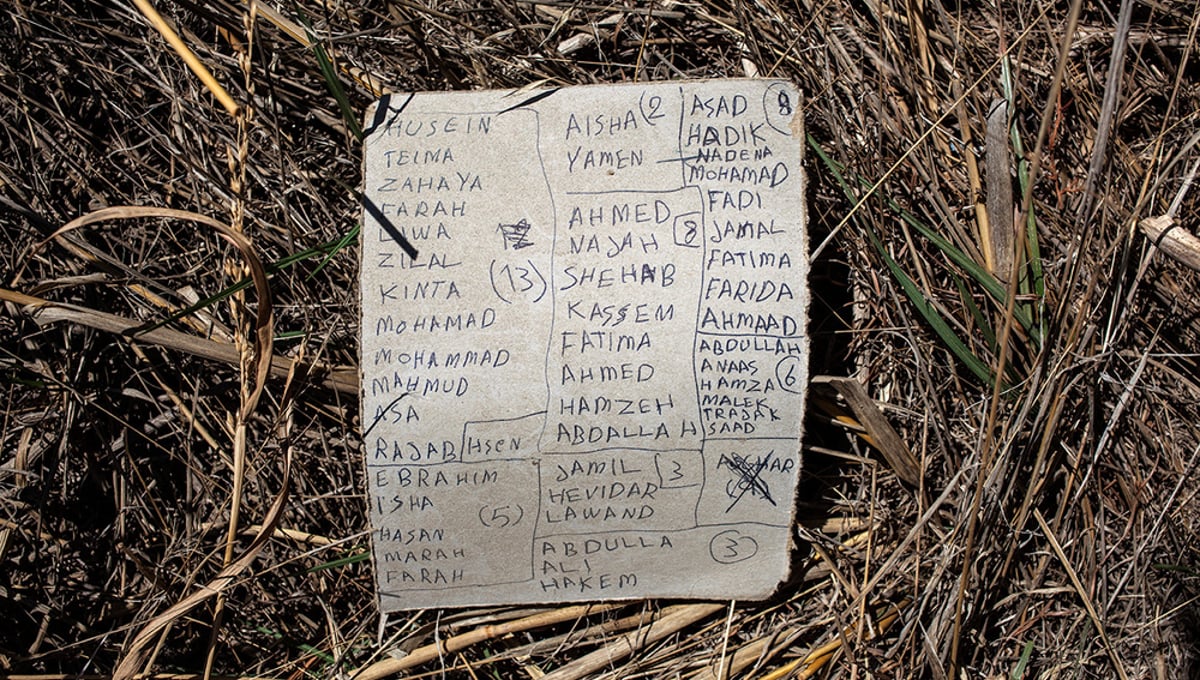 HUSEIN
TELMA
ZAHAYA
FARAH
LAWA
ZILAL
KINTA (13)
MOHAMAD
MOHAMMAD
MAHMUD
ASA
RAJAB HSEN
EBRAHIM
ISHA
(5)
HASAN
MARAH
FARAH
AISHA (2
YAMEN
AHMED
NAJAH 8
SHEHAB
KASSEM
FATIMA
AHMED
HAMZEH
ABDALLAH
JAMIL 3
HEVIDAR
LAWAND
ABDULLA 3
ALI
HAKEM
ASAD
HADIK
NADENA
MOHAMAD
FADI
JAMAL
FATIMA
FARIDA
AHMAAD
ABDULLAH
ANAAS
HAMZA 6
MALEK
TRAJAK
SAAD